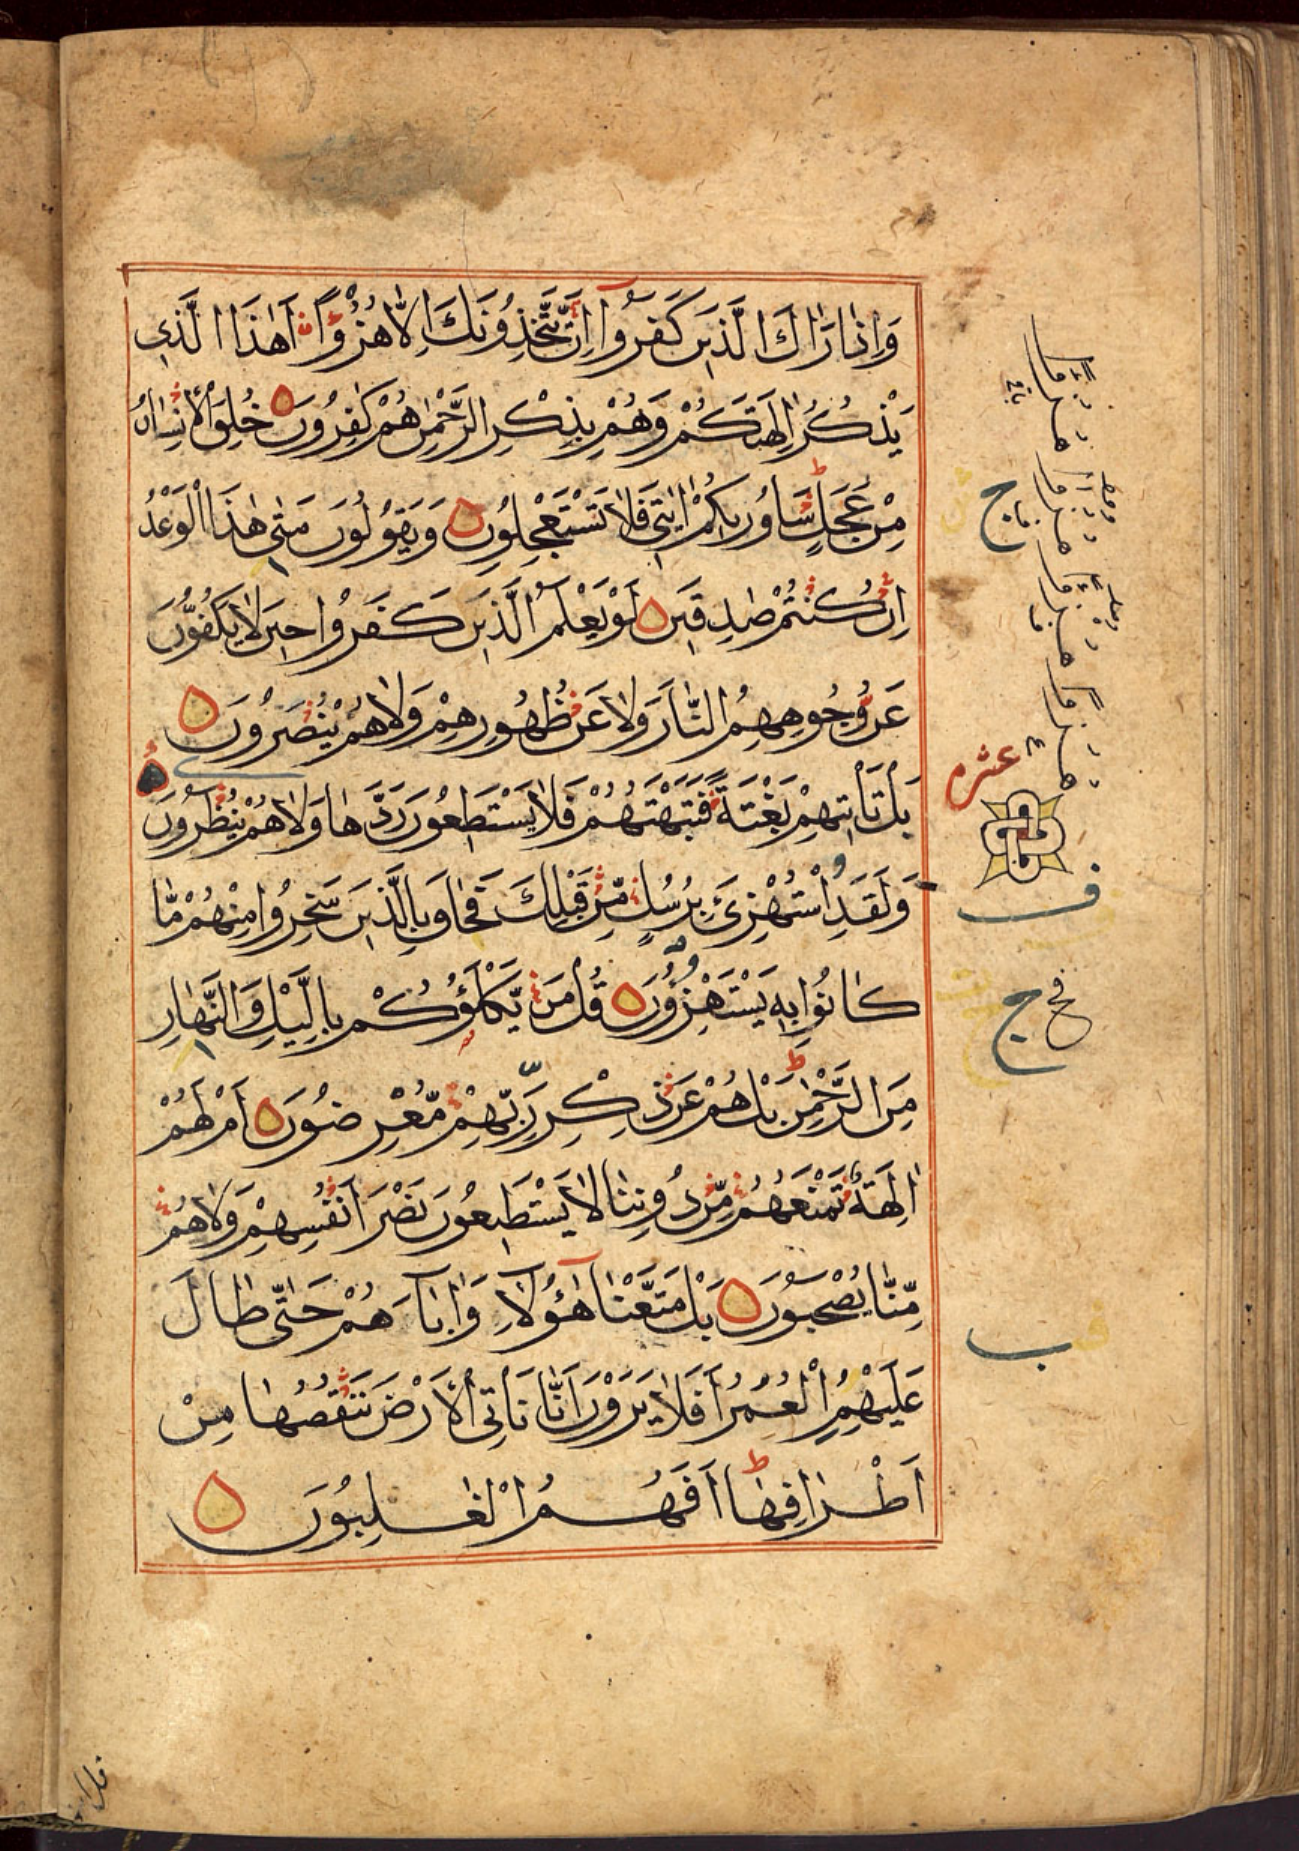 وَاِذَا رَاٰكَ الَّذِيْنَ كَفَرُوْٓا اِنْ يَّتَّخِذُوْنَكَ اِلَّا هُزُوًا اَهٰذَا الَّذِى
يَذْكُرُ اٰلِهَتَكُمْ وَهُمْ بِذِكْرِ الرَّحْمٰنِ هُمْ كٰفِرُوْنَ خُلِقَ الْاِنْسَانُ
مِنْ عَجَلٍ سَاُورِيْكُمْ اٰيٰتِىْ فَلَا تَسْتَعْجِلُوْنِ وَيَقُوْلُوْنَ مَتٰى هٰذَا الْوَعْدُ
اِنْ كُنْتُمْ صٰدِقِيْنَ لَوْ يَعْلَمُ الَّذِيْنَ كَفَرُوْا حِيْنَ لَا يَكُفُّوْنَ
عَنْ وُّجُوْهِهِمُ النَّارَ وَلَا عَنْ ظُهُوْرِهِمْ وَلَا هُمْ يُنْصَرُوْنَ
بَلْ تَاْتِيْهِمْ بَغْتَةً فَتَبْهَتُهُمْ فَلَا يَسْتَطِيْعُوْنَ رَدَّهَا وَلَا هُمْ يُنْظَرُوْنَ
وَلَقَدِ اسْتُهْزِئَ بِرُسُلٍ مِّنْ قَبْلِكَ فَحَاقَ بِالَّذِيْنَ سَخِرُوْا مِنْهُمْ مَّا
كَانُوْا بِهٖ يَسْتَهْزِءُوْنَ قُلْ مَنْ يَّكْلَؤُكُمْ بِالَّيْلِ وَالنَّهَارِ
مِنَ الرَّحْمٰنِ بَلْ هُمْ عَنْ ذِكْرِ رَبِّهِمْ مُّعْرِضُوْنَ اَمْ لَهُمْ
اٰلِهَةٌ تَمْنَعُهُمْ مِّنْ دُوْنِنَا لَا يَسْتَطِيْعُوْنَ نَصْرَ اَنْفُسِهِمْ وَلَا هُمْ
مِّنَّا يُصْحَبُوْنَ بَلْ مَتَّعْنَا هٰٓؤُلَآءِ وَاٰبَآءَهُمْ حَتّٰى طَالَ
عَلَيْهِمُ الْعُمُرُ اَفَلَا يَرَوْنَ اَنَّا نَاْتِى الْاَرْضَ نَنْقُصُهَا مِنْ
اَطْرَافِهَا اَفَهُمُ الْغٰلِبُوْنَ
ج
عشره
ف
ج
ب